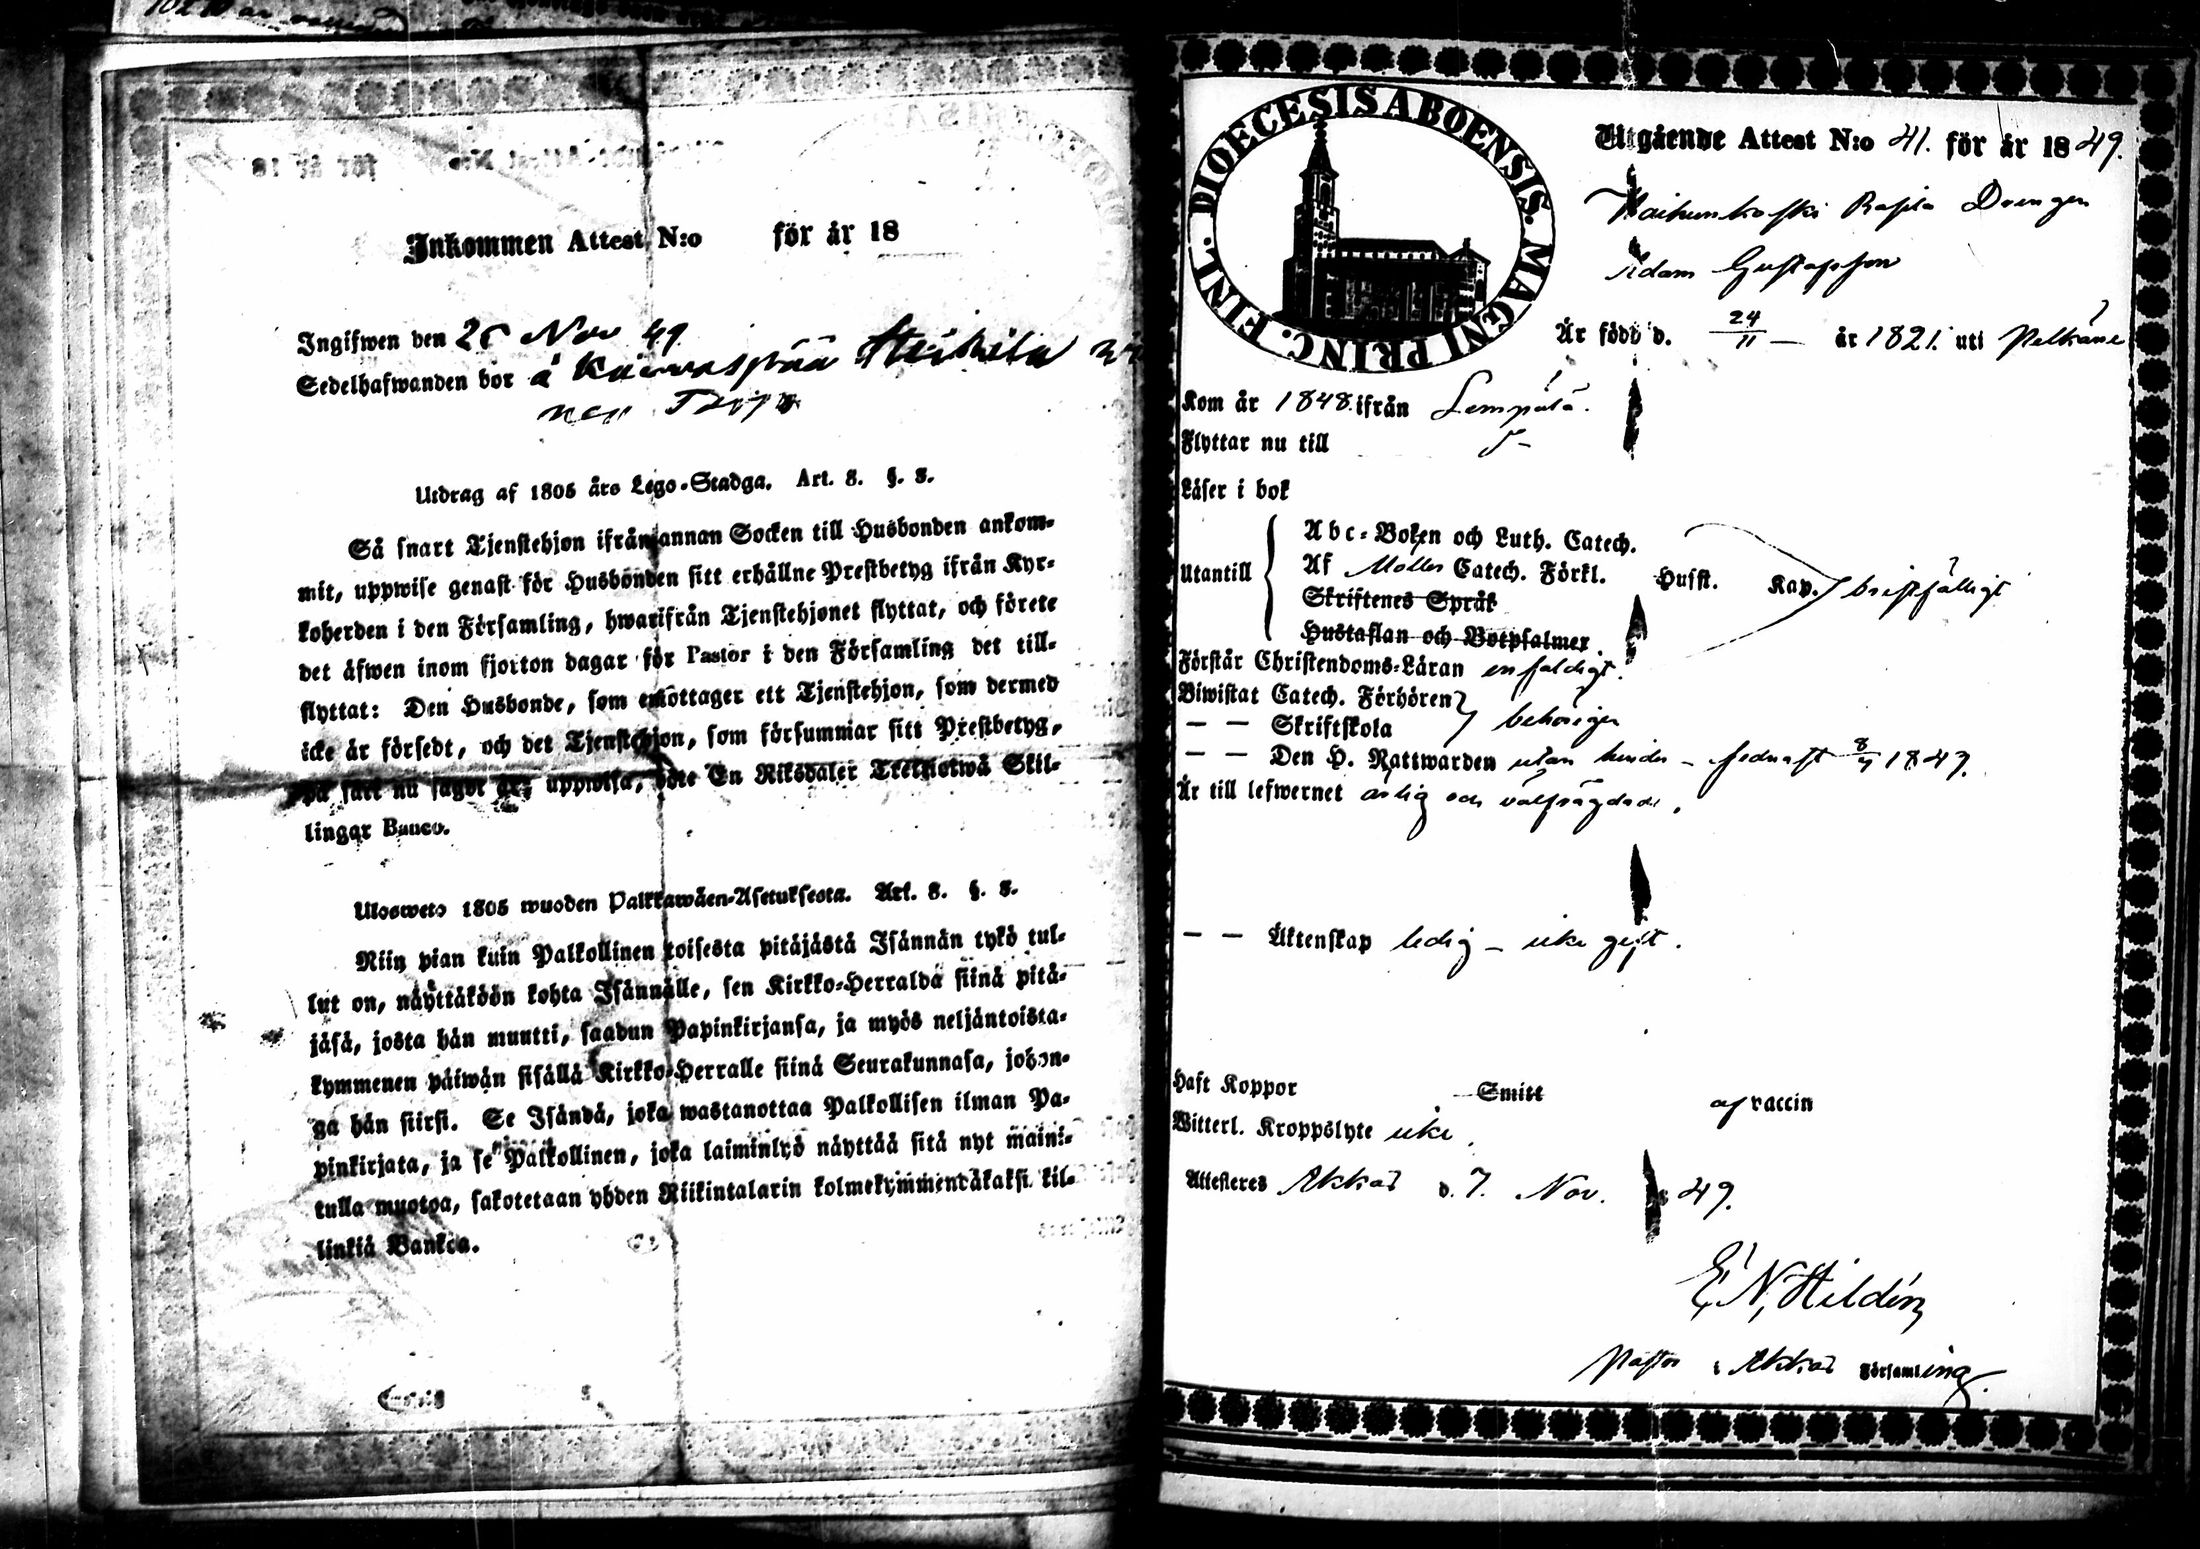 Inkommen Attest N:o för år 18
Ingifwen den 25 Nov 49
Sedelhafwanden bor å
Utdrag af 1805 års Lego-Stadga. Art. 8. §. 8.
Så snart Tjenstehjon ifrån annan Socken till Husbonden ankom-
mit, uppwise genast för Husbonden sitt erhållne Prestbetyg ifrån Kyr-
koherden i den Församling, hwarifrån Tjenstehjonet flyttat, och förete
det äfwen inom fjorton dagar för Pastor i den Församling det till-
flyttat: Den Husbonde, som emottager ett Tjenstehjon, som dermed
icke är försedt, och det Tjenstehjon, som försummar sitt Prestbetyg,
på sätt nu sagdt är, uppwisa, böte En Riksdaler Trettiotwå Skil-
lingar Banco.
Ulosweto 1805 wuoden Palkkawäen-Asetuksesta. Art. 8. §. 8.
Niin pian kuin Palkollinen toisesta pitäjästä Isännän tykö tul-
lut on, näyttäköön kohta Isännälle, sen Kirkko-Herralda siinä pitä-
jäsä, josta hän muutti, saadun Papinkirjansa, ja myös neljäntoista-
kymmenen päiwän sisällä Kirkko-Herralle siinä Seurakunnasa, johon-
ga hän siirsi. Se Isändä, joka wastanottaa Palkollisen ilman Pa-
pinkirjata, ja se Palkollinen, joka laiminlyö näyttää sitä nyt maini-
tulla muotoa, sakotetaan yhden Riikintalarin kolmekymmendäkaksi kil-
linkiä Bankoa.
DIOECESIS ABOENSIS. MAGNI PRINC. FINL.
Utgående Attest N:o 41. för år 1849.
Rapila Drengen
Adam Gustafsson
Är född d. 24/11 — år 1821. uti Pelkäne
Kom år 1848. ifrån Lempälä.
Flyttar nu till
Läser i bok
Utantill
Abc-Boken och Luth. Catech.
Af Möllers Catech. Förkl. Husst. Kap. bristfälligt
Skriftenes Språk
Hustaflan och Botpsalmer.
Förstår Christendoms-Läran enfaldigt.
Biwistat Catech. Förhören
— — Skriftskola behörigen
— — Den H. Nattwarden utan hinder - sednast 8/7 1849.
Är till lefwernet ärlig och välfrägdad.
— — Äktenskap ledig – icke gift.
Haft Koppor — Smitt af vaccin
Witterl. Kroppslyte icke.
Attesteres Akkas d. 7. Nov. 1849.
E. N. Hildén
Pastor i Akkas Församling.